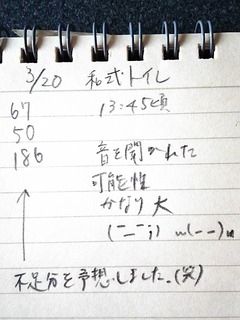 3/20 和式トイレ
67 13:45頃
50
186 音を聞かれた
可能性
かなり大
(ー_ー;) m(--)m
不足分を予想しました。(笑)